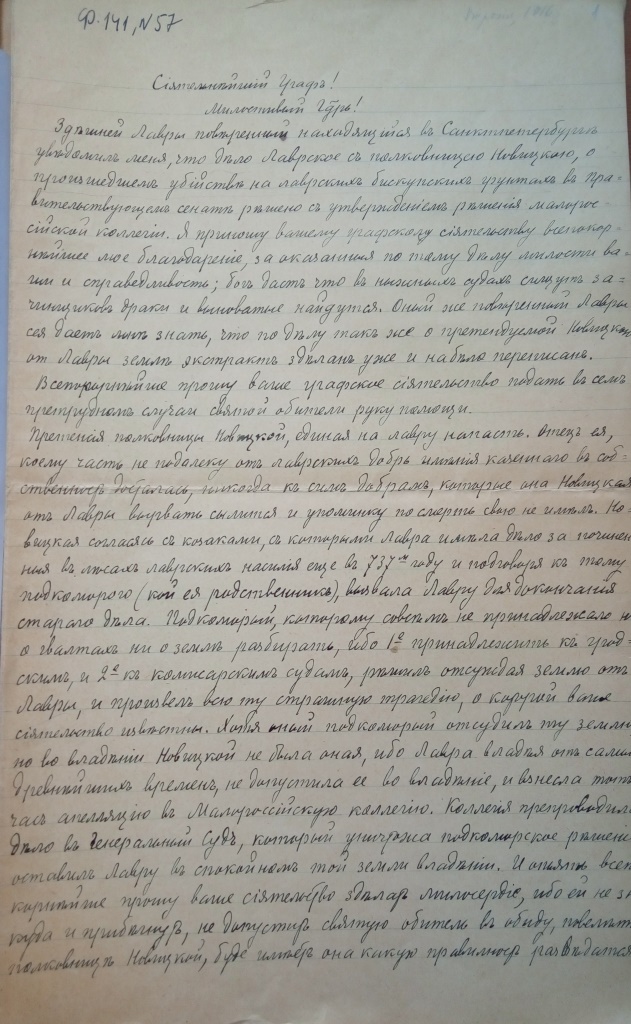 Ф. 141, №57
Сіятельнѣйшій Графъ!
Милостивый Гдрь!
Здѣшней Лавры повѣренный находящійся въ Санктпетербургѣ
увѣдомилъ меня, что дѣло Лаврское съ полковницею Новицкою, о
происшедшемъ убійствѣ на лаврскихъ бискупскихъ грунтахъ въ Пра-
вительствующемъ сенатѣ рѣшено съ утвержденіемъ рѣшенія малорос-
сійской коллегіи. Я приношу вашему графскому сіятельству всепокор-
нѣйшее мое благодареніе, за оказанныя по тому дѣлу милости ва-
ши и справедливость; богъ дастъ что въ нижныхъ судахъ сищутъ за-
чинщиковъ драки и виноватые найдутся. Оный же повѣренный Лавры
сея даетъ мнѣ знать, что по дѣлу такъ же о претендуемой Новицкою
от Лавры землѣ экстрактъ здѣланъ уже и набѣло переписанъ.
Всепокорнѣйше прошу ваше графское сіятельство подать въ семъ
претрудномъ случаи святой обители руку помощи.
Претенсія полковницы Новицкой, единая на лавру напасть. Отецъ ея,
коему часть не подалеку отъ лаврскихъ добръ имѣнія казеннаго въ соб-
ственность досталась, никогда къ симъ добрамъ, которые она Новицкая
отъ Лавры вырвать сылится и упоминку по смерть свою не имѣлъ. Но-
вицкая согласясь съ козаками, съ которыми Лавра имѣла дѣло за починен-
ния въ лѣсахъ лаврскихъ насилія еще въ 737м году и подговоря къ тому
подкоморого (кой ея родственникъ), вызвала Лавру для докончанія
старого дѣла. Подкоморый, которому совсѣмъ не принадлежало ни
о гвалтахъ ни о землѣ разбирать, ибо 1е принадлежитъ къ град-
скимъ, и 2е къ комисарскимъ судамъ, рѣшилъ отсуждая землю отъ
Лавры, и произвелъ всю ту страшную трагедію, о которой ваше
сіятельство извѣстны. Хотя оный подкоморый отсудилъ ту землю
но во владѣніи Новицкой не была оная, ибо Лавра владѣя отъ самыхъ
древнѣйшихъ временъ, не допустила ее во владѣніе, и внесла тотъ
часъ апелляцію въ Малороссійскую коллегію. Коллегія препроводила
дѣло въ Генеральный Судъ, который уничтожа подкоморское рѣшеніе
оставилъ Лавру въ спокойномъ той земли владѣніи. И опять всепо-
корнѣйше прошу ваше сіятельство здѣлать милосердіе, ибо ей не за
куда и прибѣгнуть, не допустить святую обитель въ обиду, повелѣть
полковницѣ Новицкой, буде имѣетъ она какую правильность развѣдатся